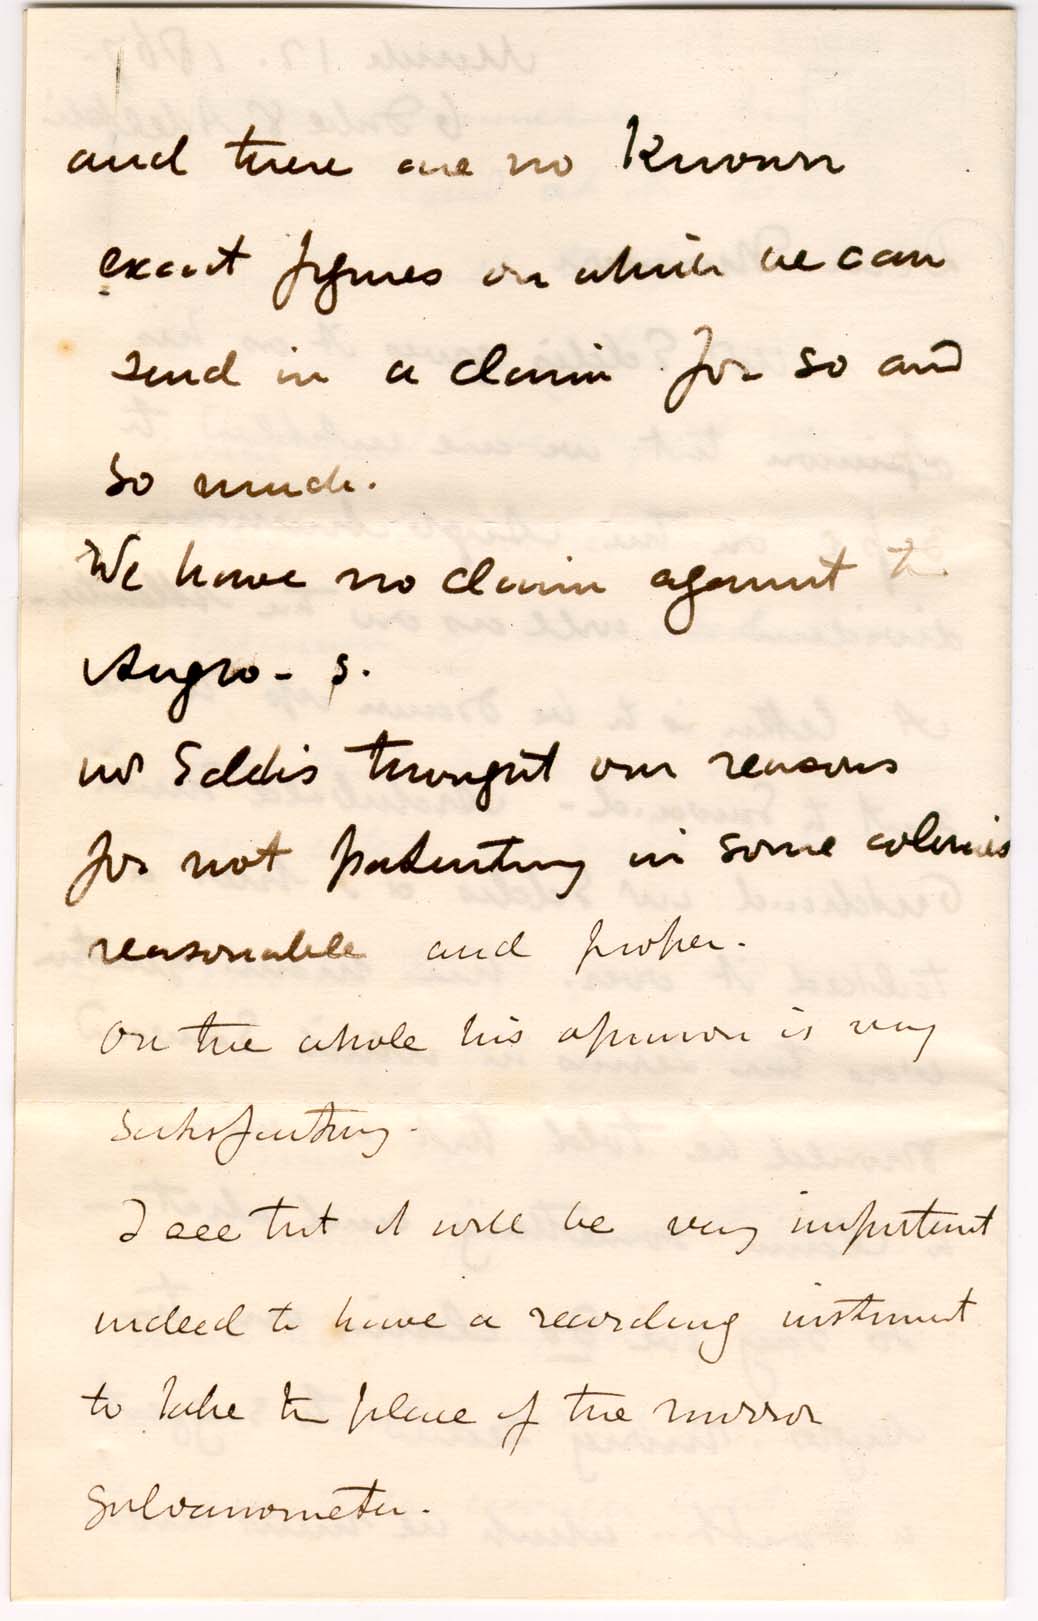 and there are no known
exact figures on which we can
send in a claim for so and
so much.
We have no claim against the
Anglo - s.
Eddis thought our reasons
for not patenting in some colonies
reasonable and proper.
On the whole his opinion is very
satisfactory.
I see that it will be very important
indeed to have a recording instrument
to take the place of the mirror
galvanometer.